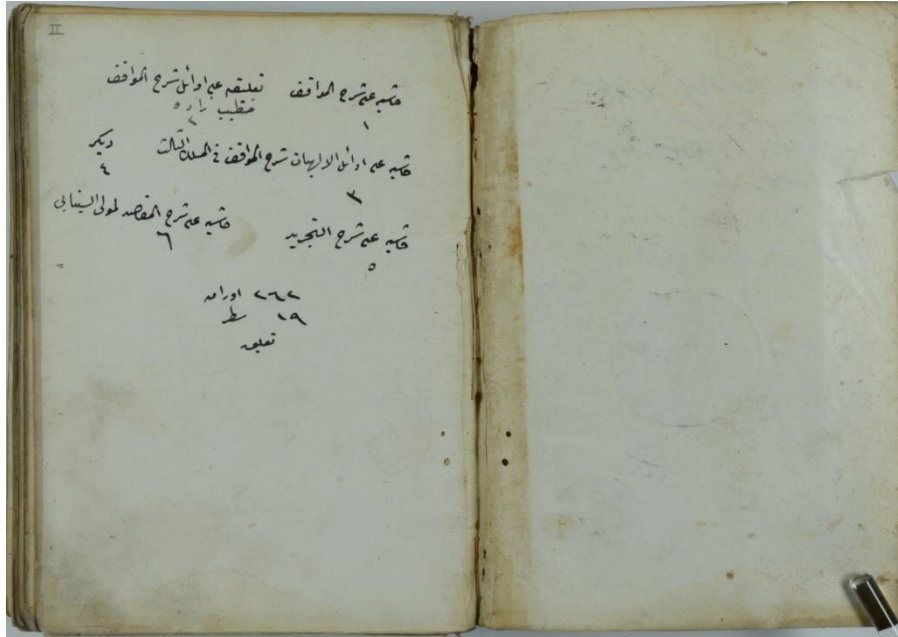 II
حاشيه على شرح المواقف تعليقه على اوائل شرح المواقف
خطيب زاده
١ ٢
حاشيه على اوائل الالهيات شرح المواقف فى المسلك الثالث ديكر
٣ ٤
حاشيه على شرح التجريد حاشيه على شرح المقاصد لمولى السينابى
٥ ٦
٢٦٢ اوراق
١٩ سطر
تعليق